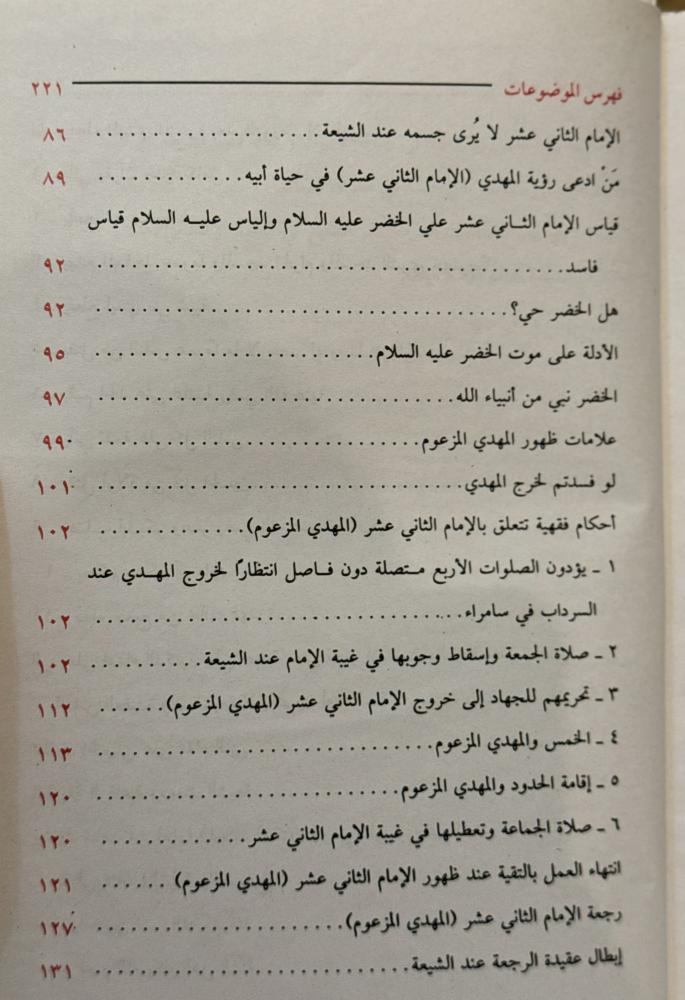 فهرس الموضوعات ٢٢١
الإمام الثاني عشر لا يُرى جسمه عند الشيعة.................... ٨٦
مَنْ ادعى رؤية المهدي (الإمام الثاني عشر) في حياة أبيه............. ٨٩
قياس الإمام الثاني عشر علي الخضر عليه السلام وإلياس عليه السلام قياس
فاسد........................................ ٩٢
هل الخضر حي؟.................................... ٩٢
الأدلة على موت الخضر عليه السلام......................... ٩٥
الخضر نبي من أنبياء الله................................ ٩٧
علامات ظهور المهدي المزعوم............................ ٩٩
لو فسدتم لخرج المهدي................................ ١٠١
أحكام فقهية تتعلق بالإمام الثاني عشر (المهدي المزعوم)............. ١٠٢
١ ـ يؤدون الصلوات الأربع متصلة دون فاصل انتظارًا لخروج المهدي عند
السرداب في سامراء................................ ١٠٢
٢ ـ صلاة الجمعة وإسقاط وجوبها في غيبة الإمام عند الشيعة.......... ١٠٢
٣ ـ تحريمهم للجهاد إلى خروج الإمام الثاني عشر (المهدي المزعوم)...... ١١٢
٤ ـ الخمس والمهدي المزعوم............................. ١١٣
٥ ـ إقامة الحدود والمهدي المزعوم.......................... ١٢٠
٦ ـ صلاة الجماعة وتعطيلها في غيبة الإمام الثاني عشر............. ١٢٠
انتهاء العمل بالتقية عند ظهور الإمام الثاني عشر (المهدي المزعوم) ...... ١٢١
رجعة الإمام الثاني عشر (المهدي المزعوم)..................... ١٢٧
إبطال عقيدة الرجعة عند الشيعة........................... ١٣١